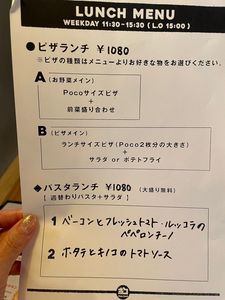 LUNCH MENU
WEEKDAY 11:30-15:30 ( L.O 15:00 )
● ピザランチ ¥1080
※ピザの種類はメニューよりお好きな物をお選びください。
A (お野菜メイン)
Pocoサイズピザ
+
前菜盛り合わせ
B (ピザメイン)
ランチサイズピザ(Poco2枚分の大きさ)
+
サラダ or ポテトフライ
◆ パスタランチ ¥1080 (大盛り無料)
【 週替わりパスタ+サラダ 】
1 ベーコンとフレッシュトマト・ルッコラの
ペペロンチーノ
2 ホタテとキノコのトマトソース